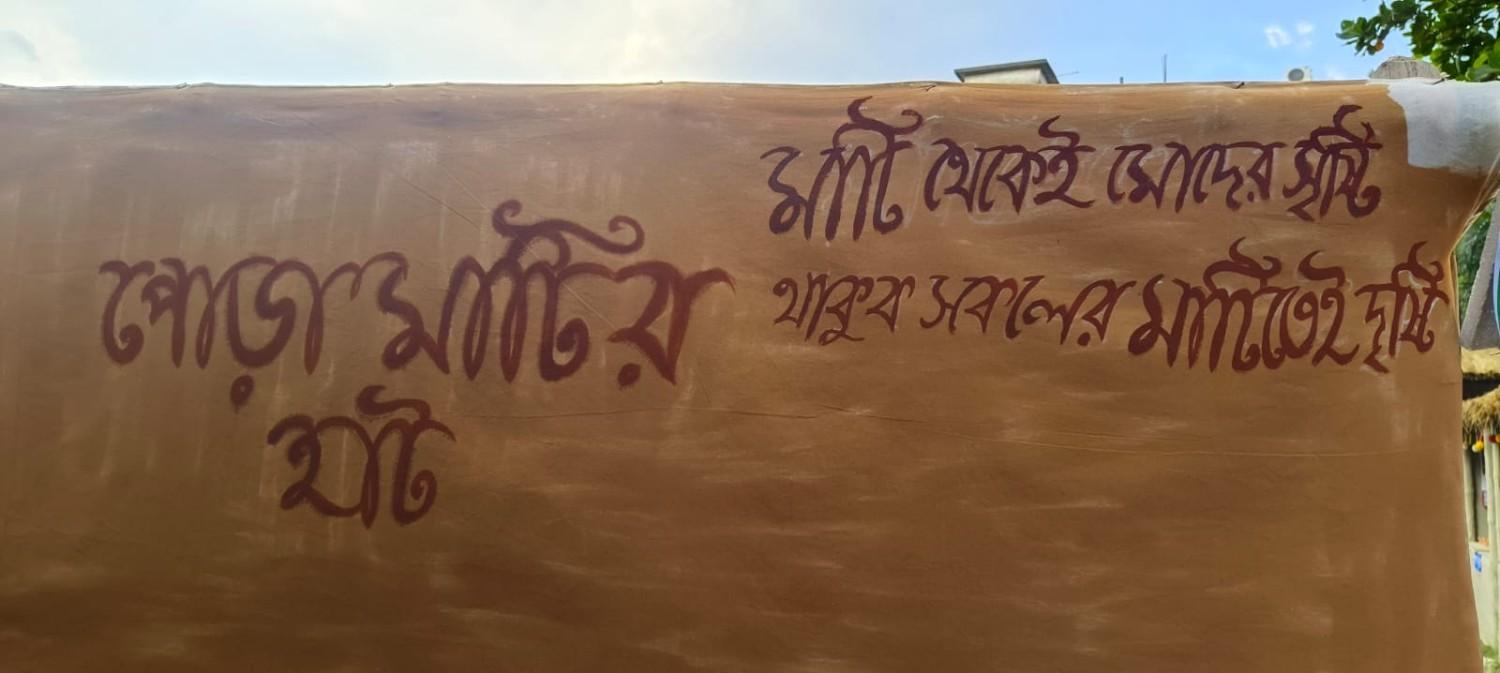 পোড়া মাটির
হাট
মাটি থেকেই মোদের সৃষ্টি
থাকুক সকলের মাটিতেই দৃষ্টি